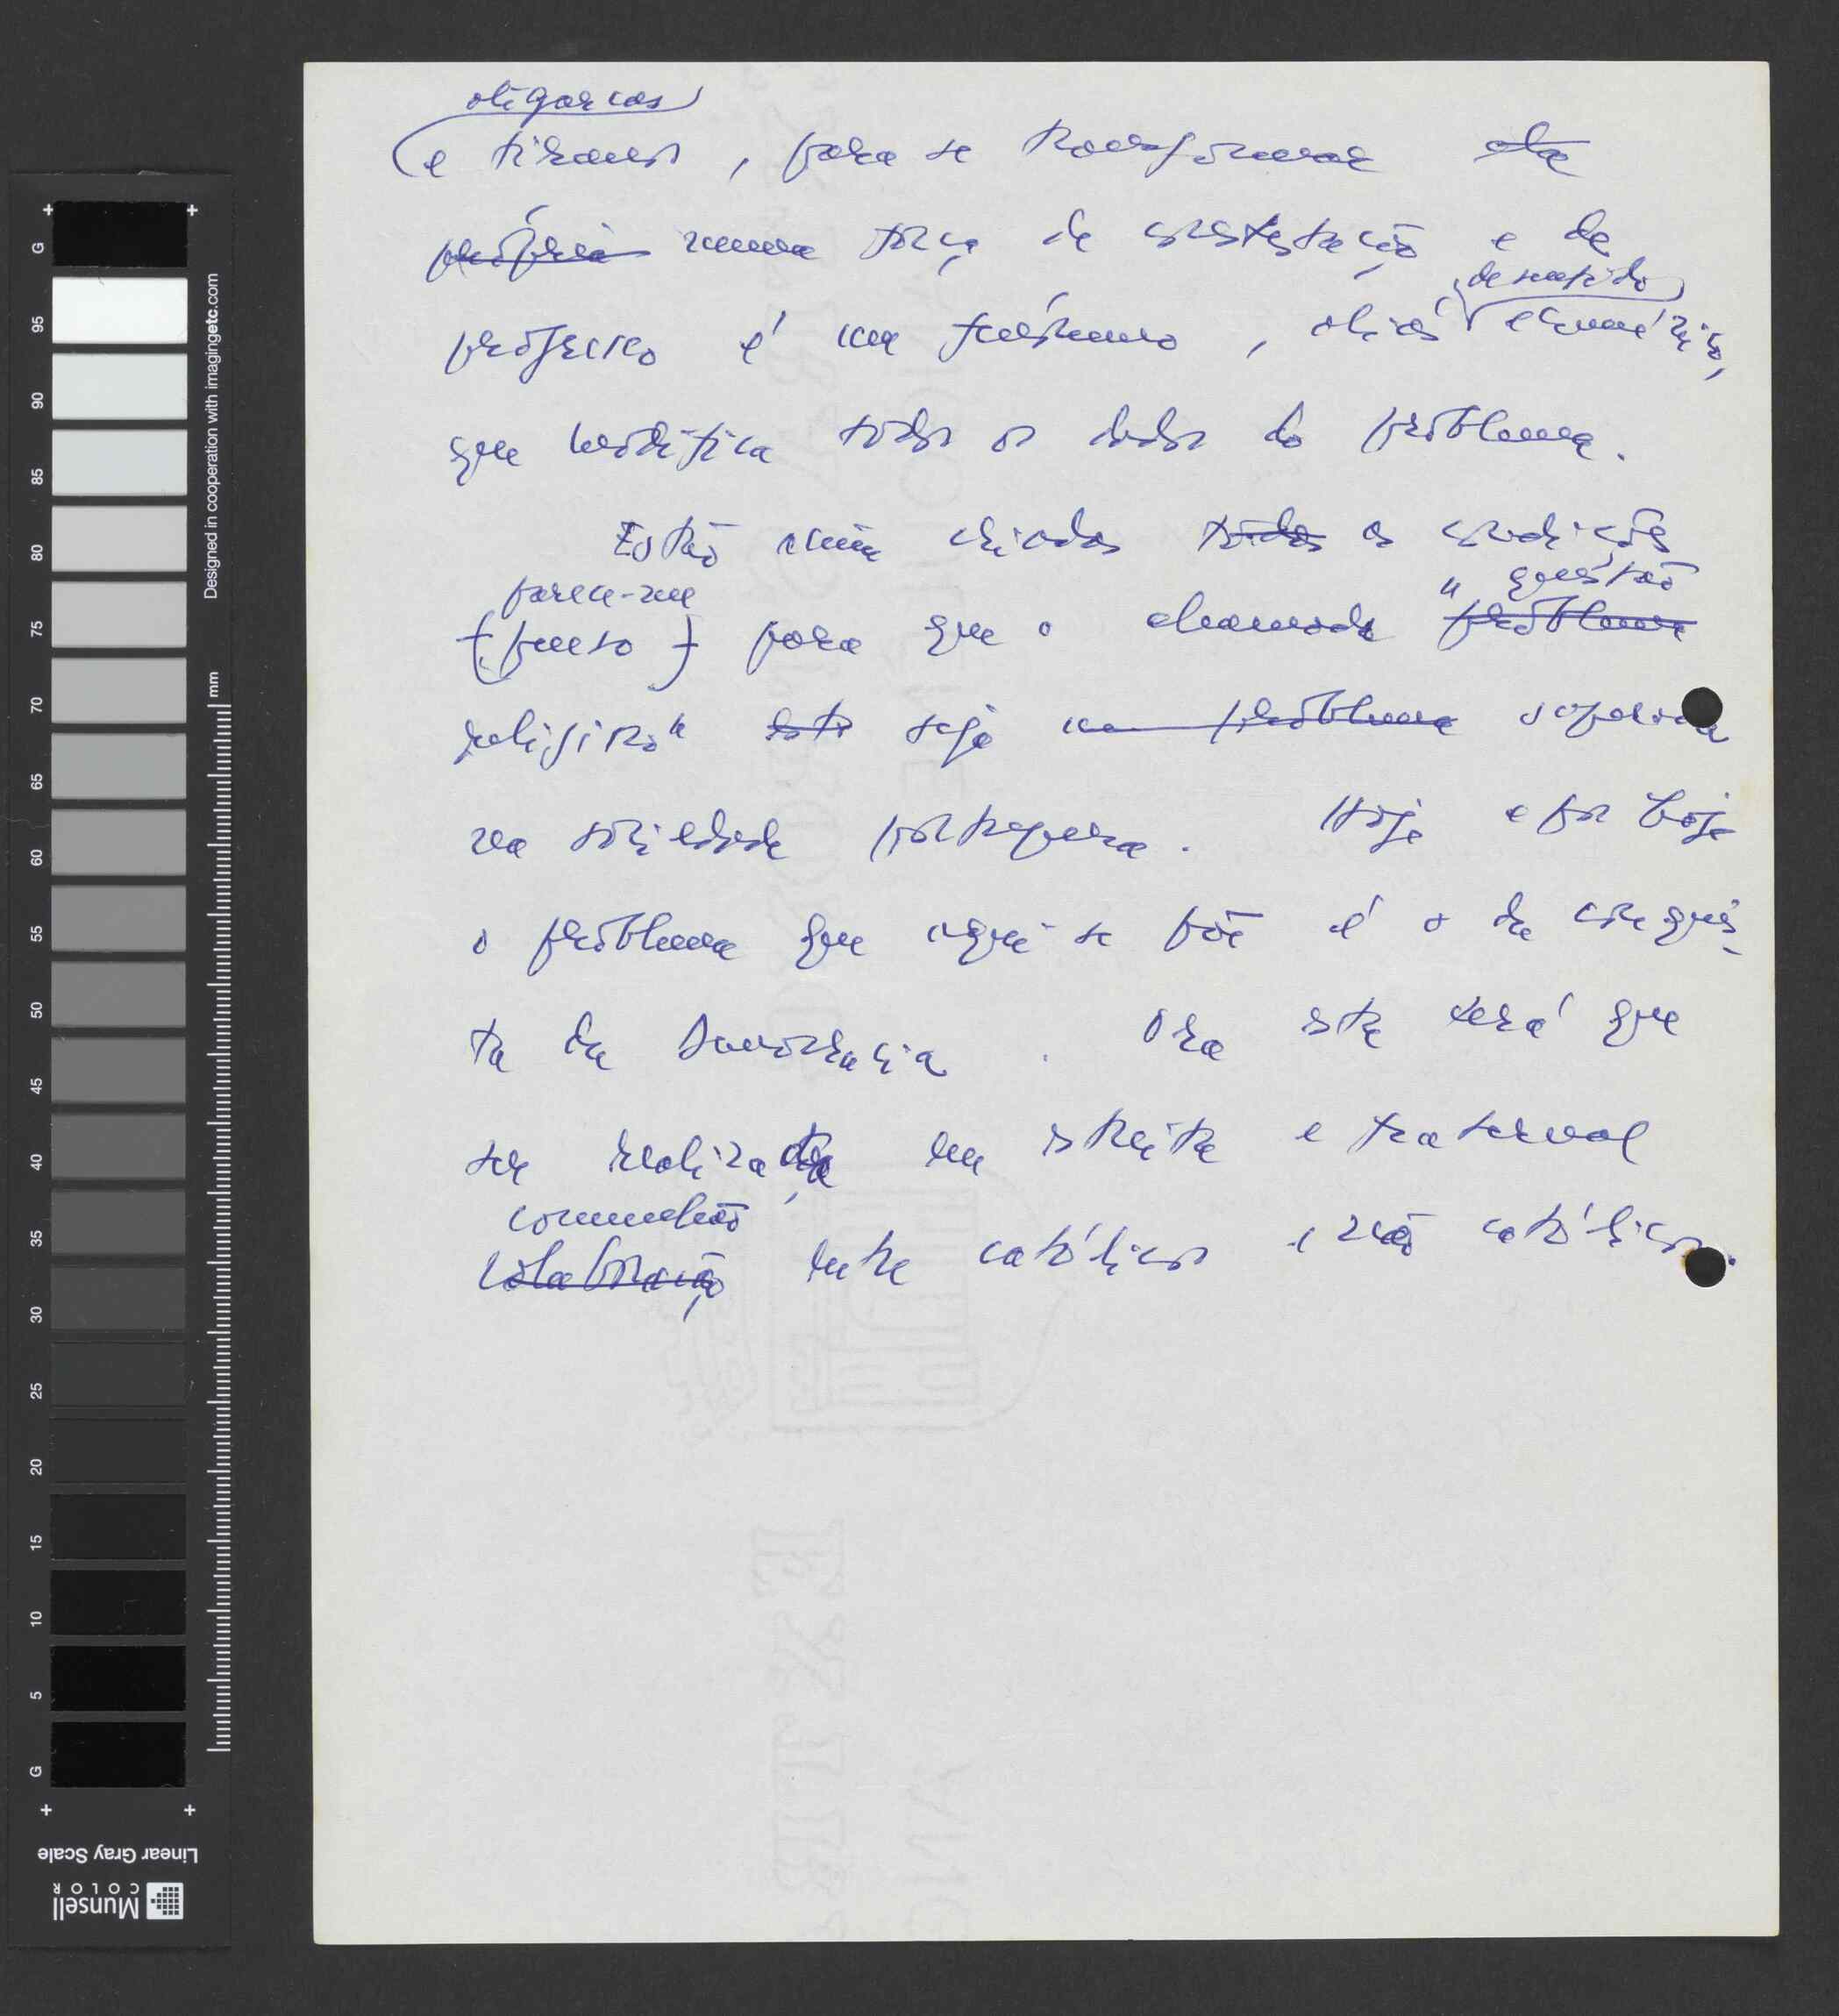 oligarcas
e tiranos, para se transformar ela
própria numa força de contestação e de
de sentido
progresso é um fenómeno, aliás ecuménico,
que modifica todos os dados do problema.
Estão assim criadas todas as condições
parece-me
"questão
(penso) para que a chamada problema
religiosa" está seja um problema superada
na sociedade portuguesa. Hoje e por hoje
o problema que aqui se põe é o da conquis-
ta da Democracia. Ora esta terá que
ser realizada em estreita e fraternal
comunhão
colaboração entre católicos e não católicos.
G
95
90
85
80
75
70
65
60
55
50
45
40
35
30
25
20
15
10
5
G
mm
Designed in cooperation with imagingetc.com
Linear Gray Scale
Munsell
COLOR